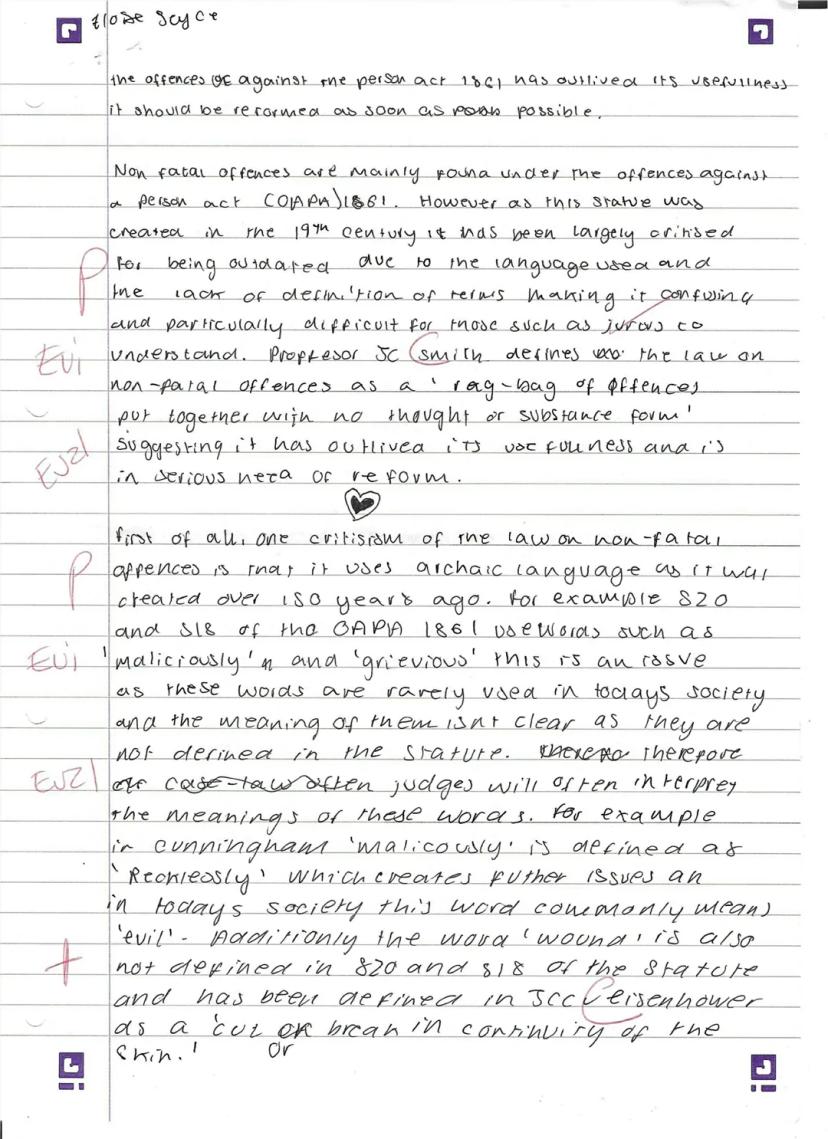 the offences OF against the person act 1861 has outlived its usefullness
it should be reformed as soon as possible.
Non fatal offences are mainly found under the offences against
a person act (OAPA) 1861. However as this statue was
created in the 19th century it has been largely critised
P for being outdated due to the language used and
the lack of definition of terms making it confusing
and particulally difficult for those such as jurors to
EVI understand. Proffesor JC Smith defines the law on
non-fatal offences as a 'rag-bag of offences
put together with no thought or substance form'
EVZI suggesting it has outlived its usefullness and is
in serious need of reform.
first of all, one critisism of the law on non-fatal
P offences is that it uses archaic language as it was
created over 150 years ago. For example S20
and S18 of the OAPA 1861 use words such as
EVI 'maliciously' and 'grievious' this is an issue
as these words are rarely used in todays society
and the meaning of them isnt clear as they are
not defined in the stature. therefore
EVZI case-law often judges will often interprey
the meanings of these words. For example
in cunningham 'malicously' is defined as
'Recklessly' which creates futher issues an
in todays society this word commonly means
'evil'. Additionly the word 'wound' is also
+ not defined in S20 and S18 of the Statute
and has been defined in JCC v eisenhower
as a 'cut or break in continuity of the
skin.' or